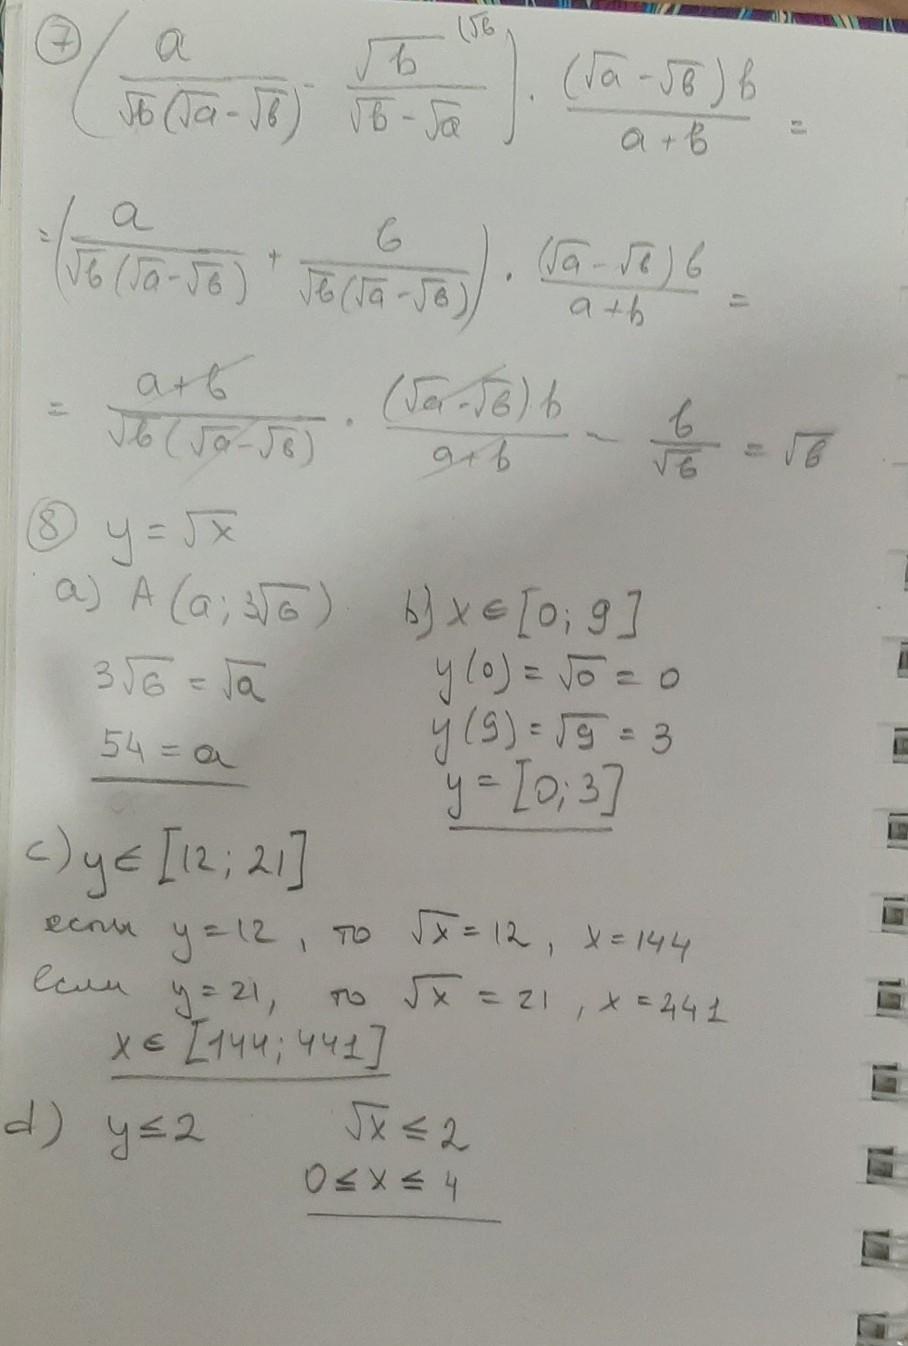 ⑦ (a/(√b(√a-√b)) - √b/(√b-√a)) · ((√a-√b)b)/(a+b) =
(√b
= (a/(√b(√a-√b)) + b/(√b(√a-√b))) · ((√a-√b)b)/(a+b) =
= (a+b)/(√b(√a-√b)) · ((√a-√b)b)/(a+b) - b/√b = √b
⑧ y = √x
a) A(a; 3√6)
3√6 = √a
54 = a
b) x ∈ [0; 9]
y(0) = √0 = 0
y(9) = √9 = 3
y = [0; 3]
c) y ∈ [12; 21]
если y = 12, то √x = 12, x = 144
если y = 21, то √x = 21, x = 441
x ∈ [144; 441]
d) y ≤ 2 √x ≤ 2
0 ≤ x ≤ 4